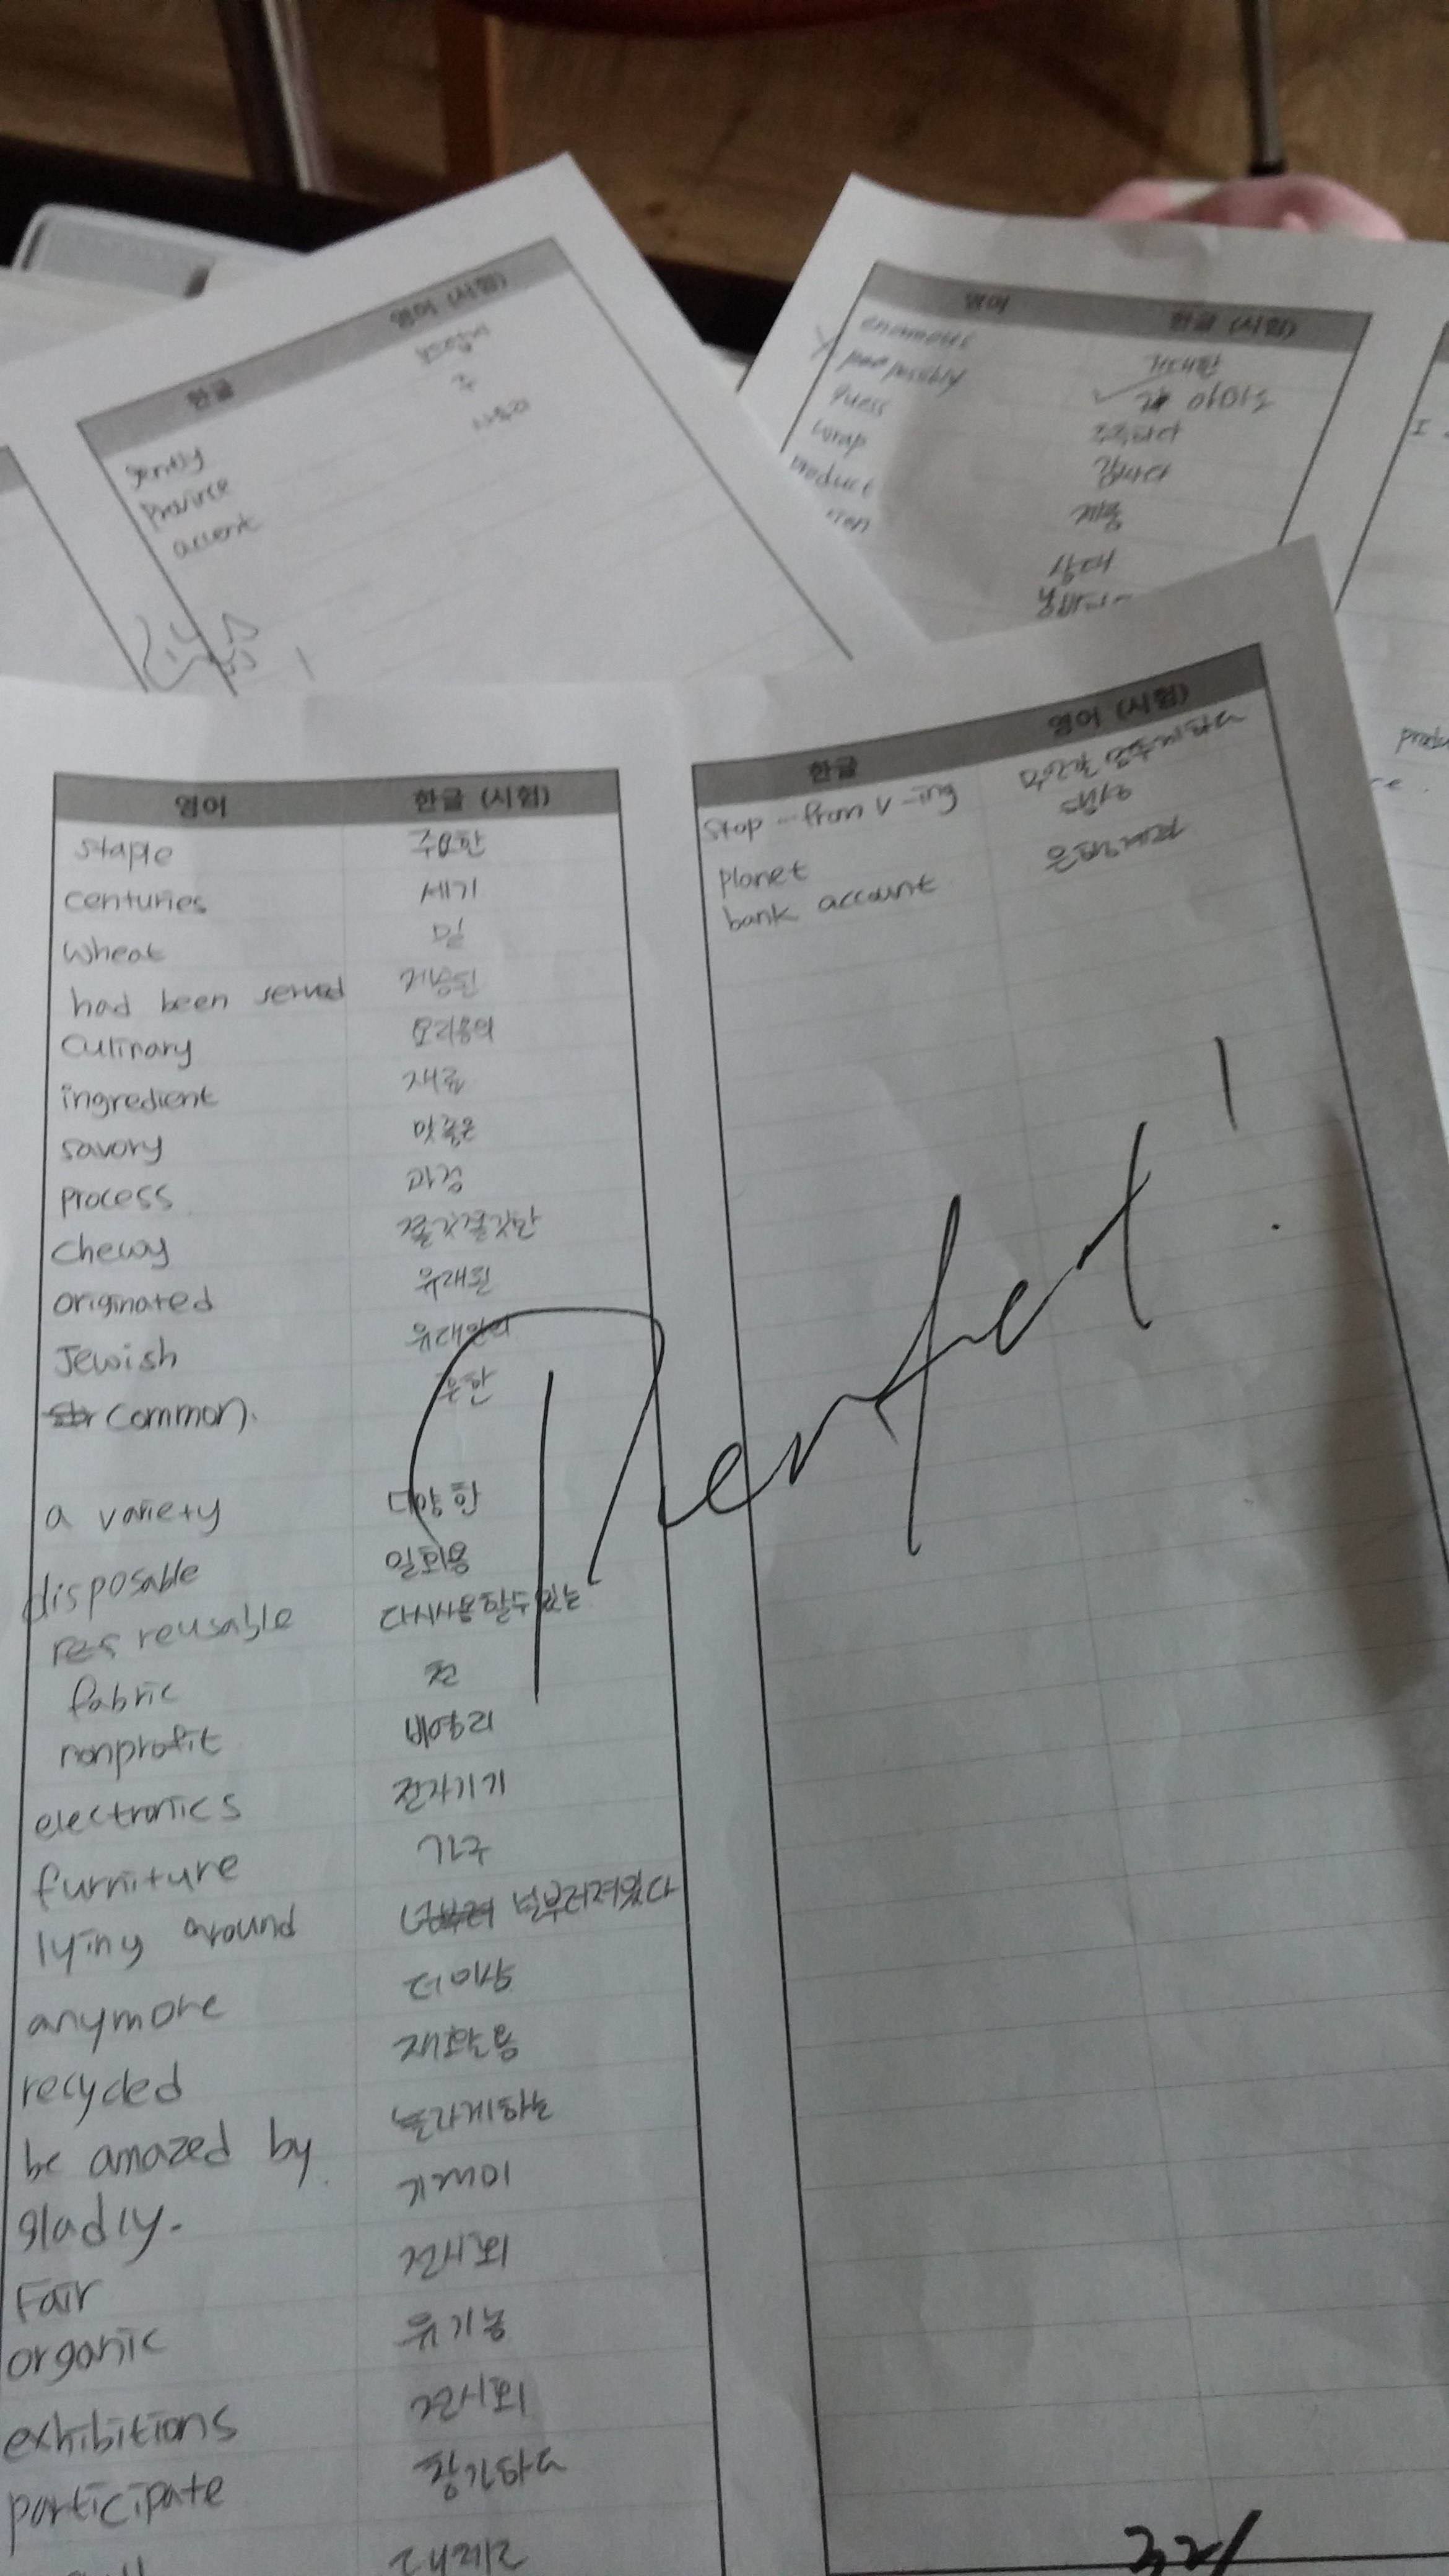 한글 영어 (시험)
gently 부드럽게
province 주
accent
영어 한글 (시험)
enormous 거대한
possibly 아마도
guess 추측하다
wrap 감싸다
product 제품
상태
영어 한글 (시험)
staple 주요한
centuries 세기
wheat 밀
had been served 제공된
culinary 요리용의
ingredient 재료
savory 맛좋은
process 과정
chewy 쫄깃쫄깃한
originated 유래된
Jewish 유대인의
common. 흔한
a variety 다양한
disposable 일회용
reusable 다시사용할수있는
fabric 천
nonprofit 비영리
electronics 전자기기
furniture 가구
lying around 널부러져있다
anymore 더이상
recycled 재활용
be amazed by 놀라게하는
gladly. 기꺼이
Fair 전시회
organic 유기농
exhibitions 전시회
participate 참가하다
대체로
한글 영어 (시험)
stop ~ from v-ing 무언갈 멈추게하다
planet 행성
bank account 은행계좌
Perfect!
I